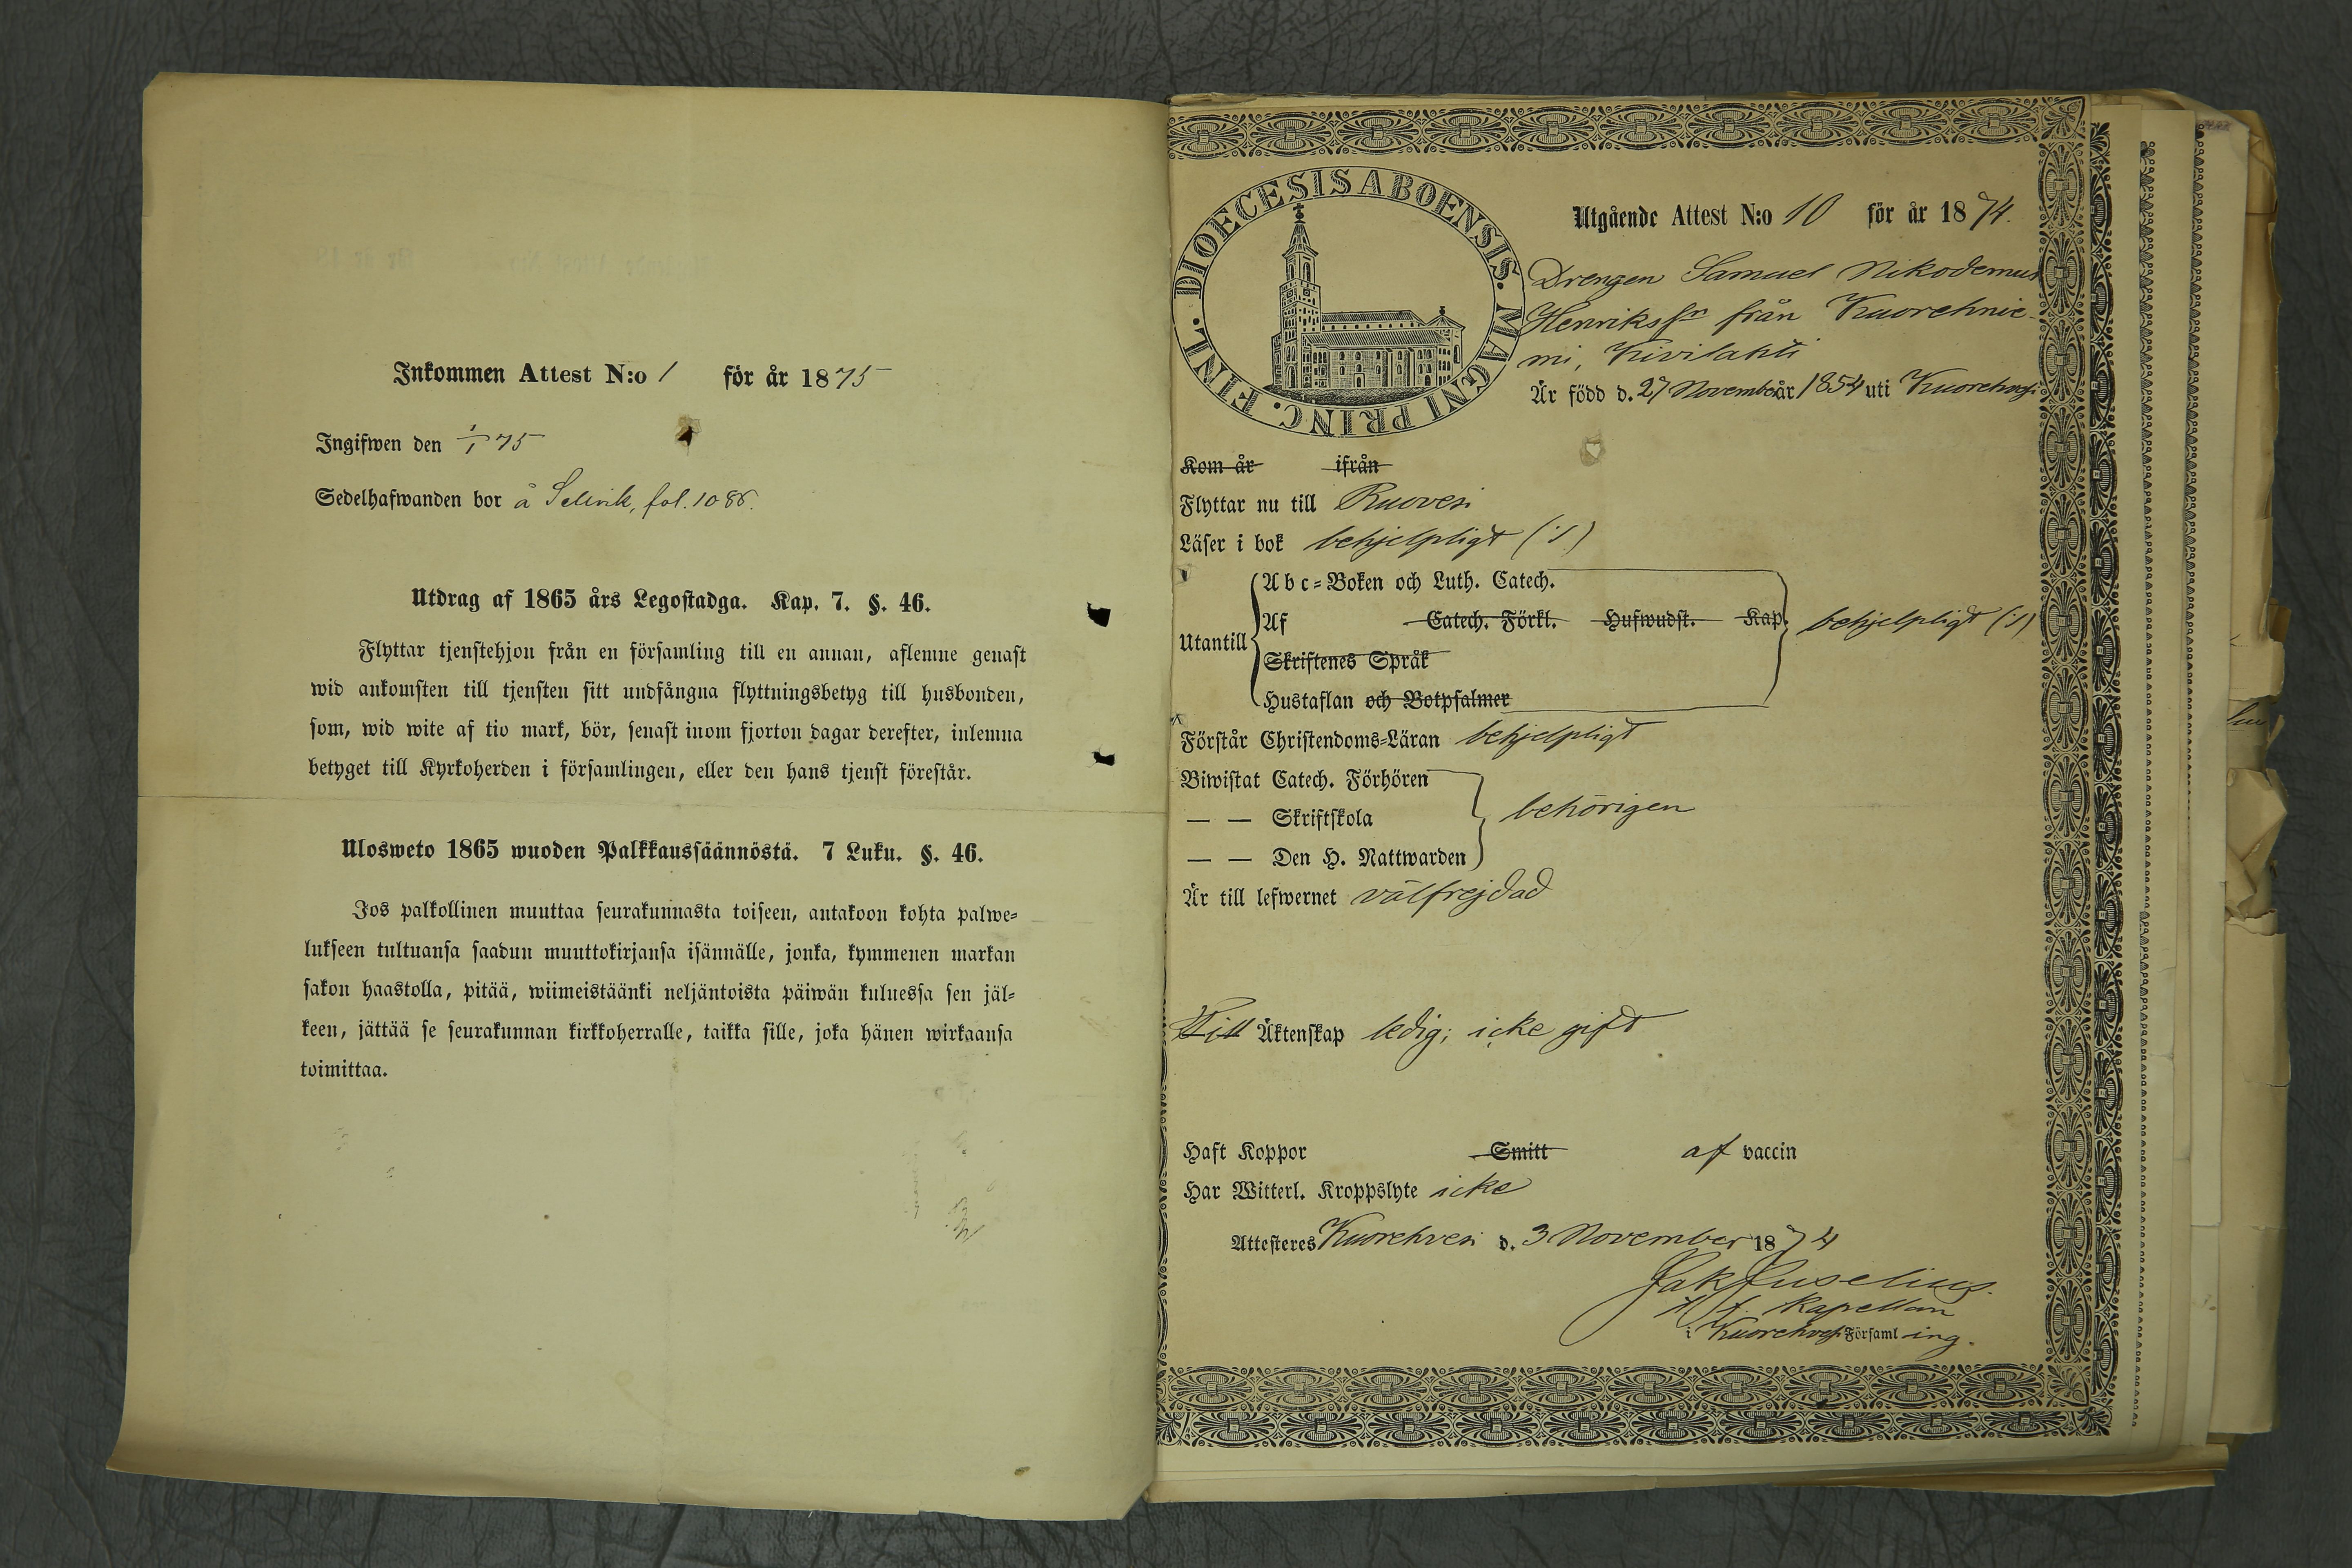 Inkommen Attest N:o 1 för år 1875
Ingifwen den 1/1 75
Sedelhafwanden bor å Selinik, fol. 1086.
Utdrag af 1865 års Legostadga. Kap. 7. §. 46.
Flyttar tjenstehjon från en församling till en annan, aflemne genast
wid ankomsten till tjensten sitt undfångna flyttningsbetyg till husbonden,
som, wid wite af tio mark, bör, senast inom fjorton dagar derefter, inlemna
betyget till Kyrkoherden i församlingen, eller den hans tjenst förestår.
Ulosweto 1865 wuoden Palkkaussäännöstä. 7 Luku. §. 46.
Jos palkollinen muuttaa seurakunnasta toiseen, antakoon kohta palwe-
lukseen tultuansa saadun muuttokirjansa isännälle, jonka, kymmenen markan
sakon haastolla, pitää, wiimeistäänki neljäntoista päiwän kuluessa sen jäl-
keen, jättää se seurakunnan kirkkoherralle, taikka sille, joka hänen wirkaansa
toimittaa.
DIOECESIS ABOENSIS. MAGNI PRINC. FINL.
Utgående Attest N:o 10 för år 1874.
Drengen Samuel Nikodemus
Henrikssn från Kuorehnie-
mi, Kivilahti
Är född d. 27 November år 1854 uti Kuorehvesi
Kom år ifrån
Flyttar nu till Ruovesi
Läser i bok behjelpligt (:/)
Abc-Boken och Luth. Catech.
Utantill Af Catech. Förkl. Hufwudst. Kap. behjelpligt (:/)
Skriftenes Språk
Hustaflan och Botpsalmer
Förstår Christendoms-Läran behjelpligt
Biwistat Catech. Förhören
— — Skriftskola behörigen
— — Den H. Nattwarden
Är till lefwernet välfrejdad
Till Äktenskap ledig; icke gift
Haft Koppor Smitt af vaccin
Har Witterl. Kroppslyte icke
Attesteres Kuorehvesi d. 3 November 1874
Jak Juselius.
Kapellan
i Kuorehvesi Församling.